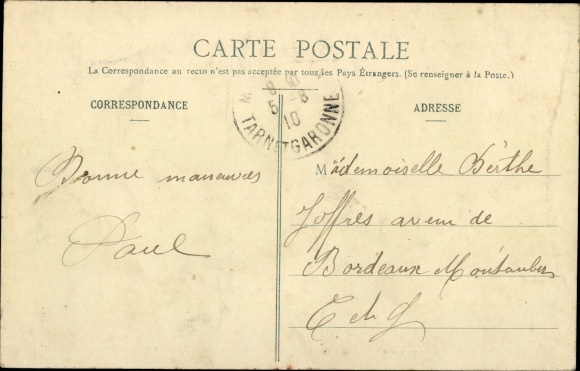 CARTE POSTALE
La Correspondance au recto n'est pas acceptée par tous les Pays Étrangers. (Se renseigner à la Poste.)
CORRESPONDANCE
ADRESSE
5 - 8
10
TARN ET GARONNE
Bonne manœuvres
Paul
Mademoiselle Berthe
Joffres avenu de
Bordeaux Montauban
T et G